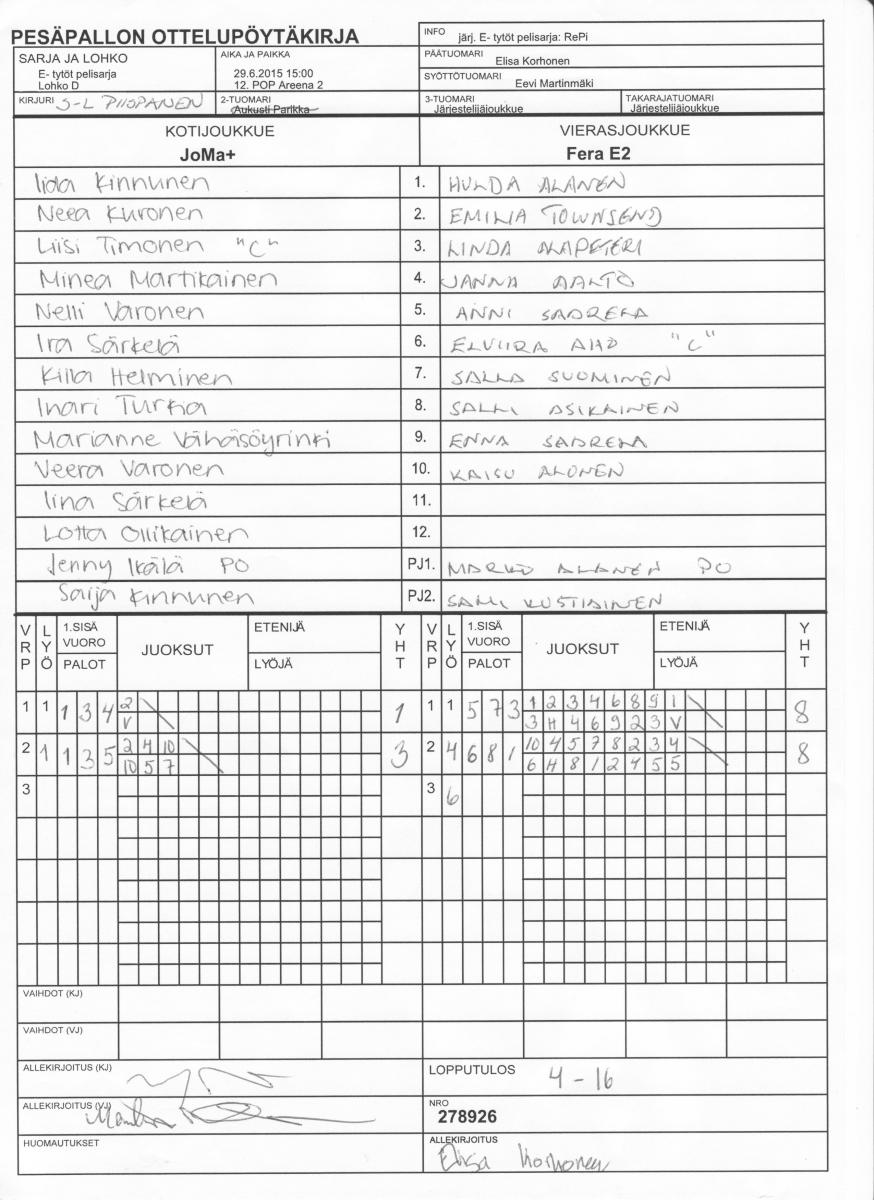 PESÄPALLON OTTELUPÖYTÄKIRJA
INFO järj. E- tytöt pelisarja: RePi
SARJA JA LOHKO
E- tytöt pelisarja
Lohko D
AIKA JA PAIKKA
29.6.2015 15:00
12. POP Areena 2
PÄÄTUOMARI
Elisa Korhonen
SYÖTTÖTUOMARI
Eevi Martinmäki
KIRJURI S-L PIISPANEN
2-TUOMARI
Aukusti Parikka
3-TUOMARI
Järjestelijäjoukkue
TAKARAJATUOMARI
Järjestelijäjoukkue
KOTIJOUKKUE
JoMa+
VIERASJOUKKUE
Fera E2
Iida Kinnunen 1. HULDA ALANEN
Neea Kuronen 2. EMILIA TOWNSEND
Liisi Timonen "C" 3. LINDA ALAPETERI
Minea Martikainen 4. JANNA AALTO
Nelli Varonen 5. ANNI SADREKA
Ira Särkelä 6. ELVIIRA AHO "C"
Kiila Helminen 7. SALLA SUOMINEN
Inari Turkia 8. SALLI ASIKAINEN
Marianne Vähäsöyrinki 9. ENNA SADREKA
Veera Varonen 10. KAISU ALONEN
Iina Särkelä 11.
Lotta Ollikainen 12.
Jenny Ikälä PO PJ1. MARKO ALANEN PO
Saija Kinnunen PJ2. SAMI KUSTIAINEN
VRP LYÖ 1.SISÄ VUORO PALOT JUOKSUT ETENIJÄ LYÖJÄ YHT VRP LYÖ 1.SISÄ VUORO PALOT JUOKSUT ETENIJÄ LYÖJÄ YHT
1 1 1 3 4 2 1 1 1 5 7 3 1 2 3 4 6 8 9 1 8
V 3 H 4 6 9 2 3 V
2 1 1 3 5 2 4 10 3 2 4 6 8 1 10 4 5 7 8 2 3 4 8
10 5 7 6 H 8 1 2 4 5 5
3 3 6
VAIHDOT (KJ)
VAIHDOT (VJ)
ALLEKIRJOITUS (KJ)
LOPPUTULOS 4 - 16
ALLEKIRJOITUS (VJ)
NRO
278926
HUOMAUTUKSET
ALLEKIRJOITUS
Elisa Korhonen